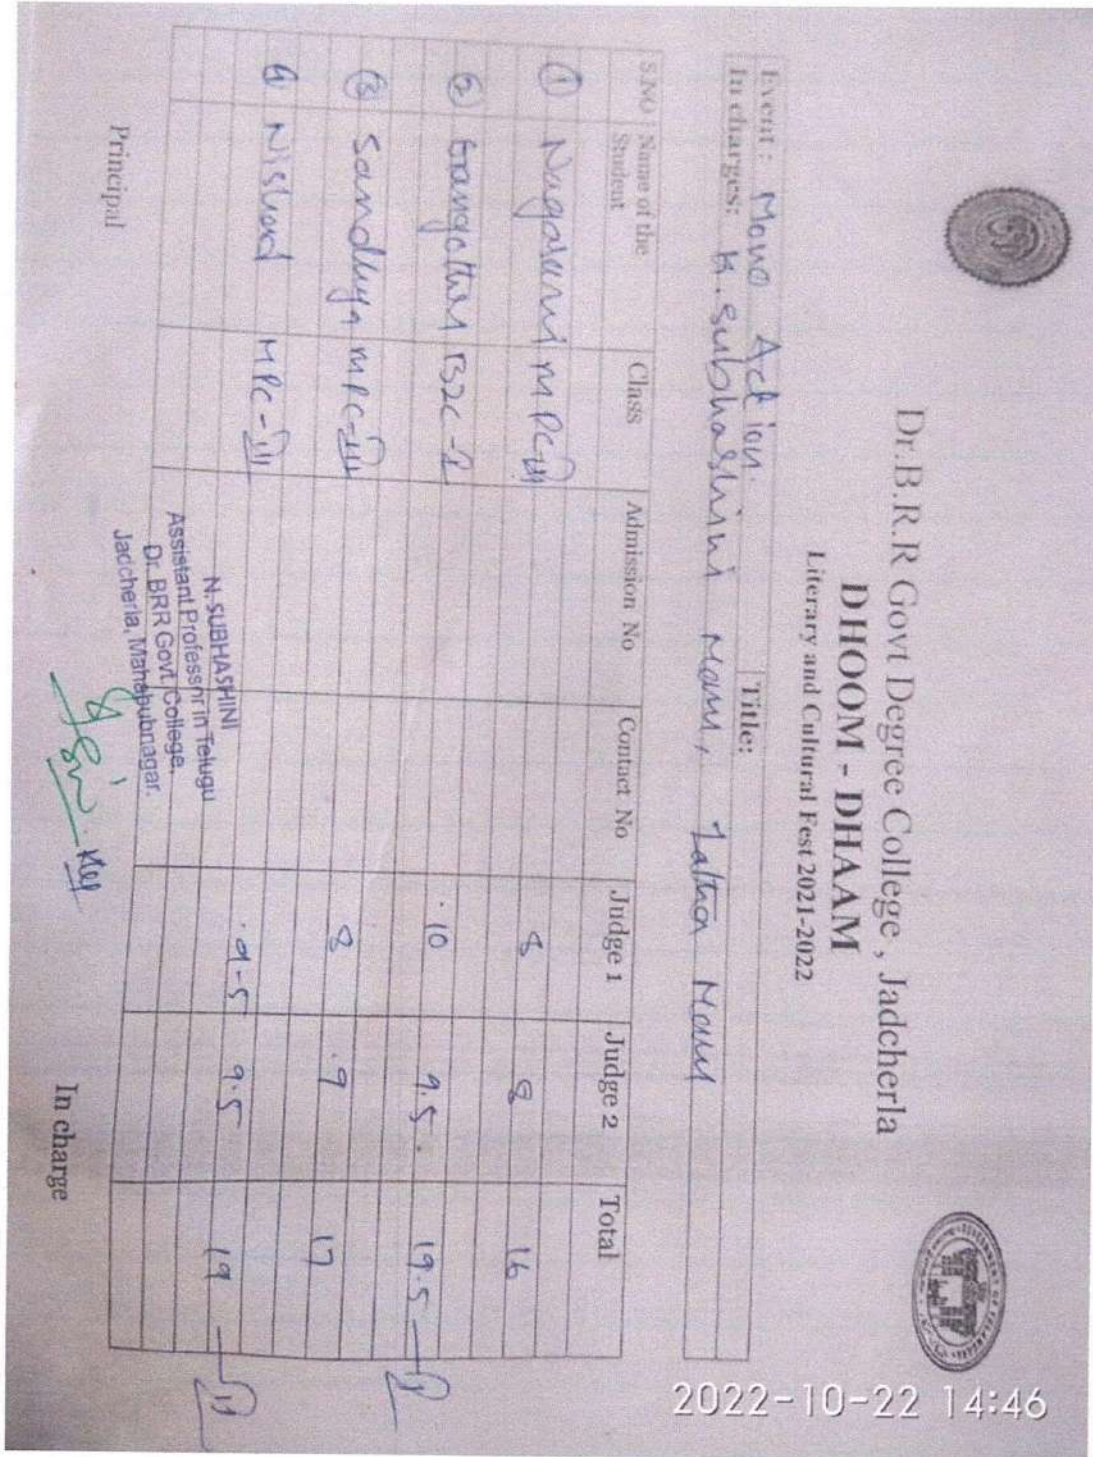 Dr.B.R.R Govt Degree College , Jadcherla
DHOOM - DHAAM
Literary and Cultural Fest 2021-2022
Event : Mono Action. Title:
In charges: K. Subhashini Mam, Mam
S.NO Name of the Student Class Admission No Contact No Judge 1 Judge 2 Total
① Nagarani MPC-III 8 8 16
② BZC-I 10 9.5 19.5 I
③ Sandhya MPC-III 8 9 17
④ MPC-III 9-5 9.5 19 II
N. SUBHASHINI
Assistant Professnr in Telugu
Dr. BRR Govt. College,
Jadcherla, Mahabubnagar.
Principal In charge
2022-10-22 14:46